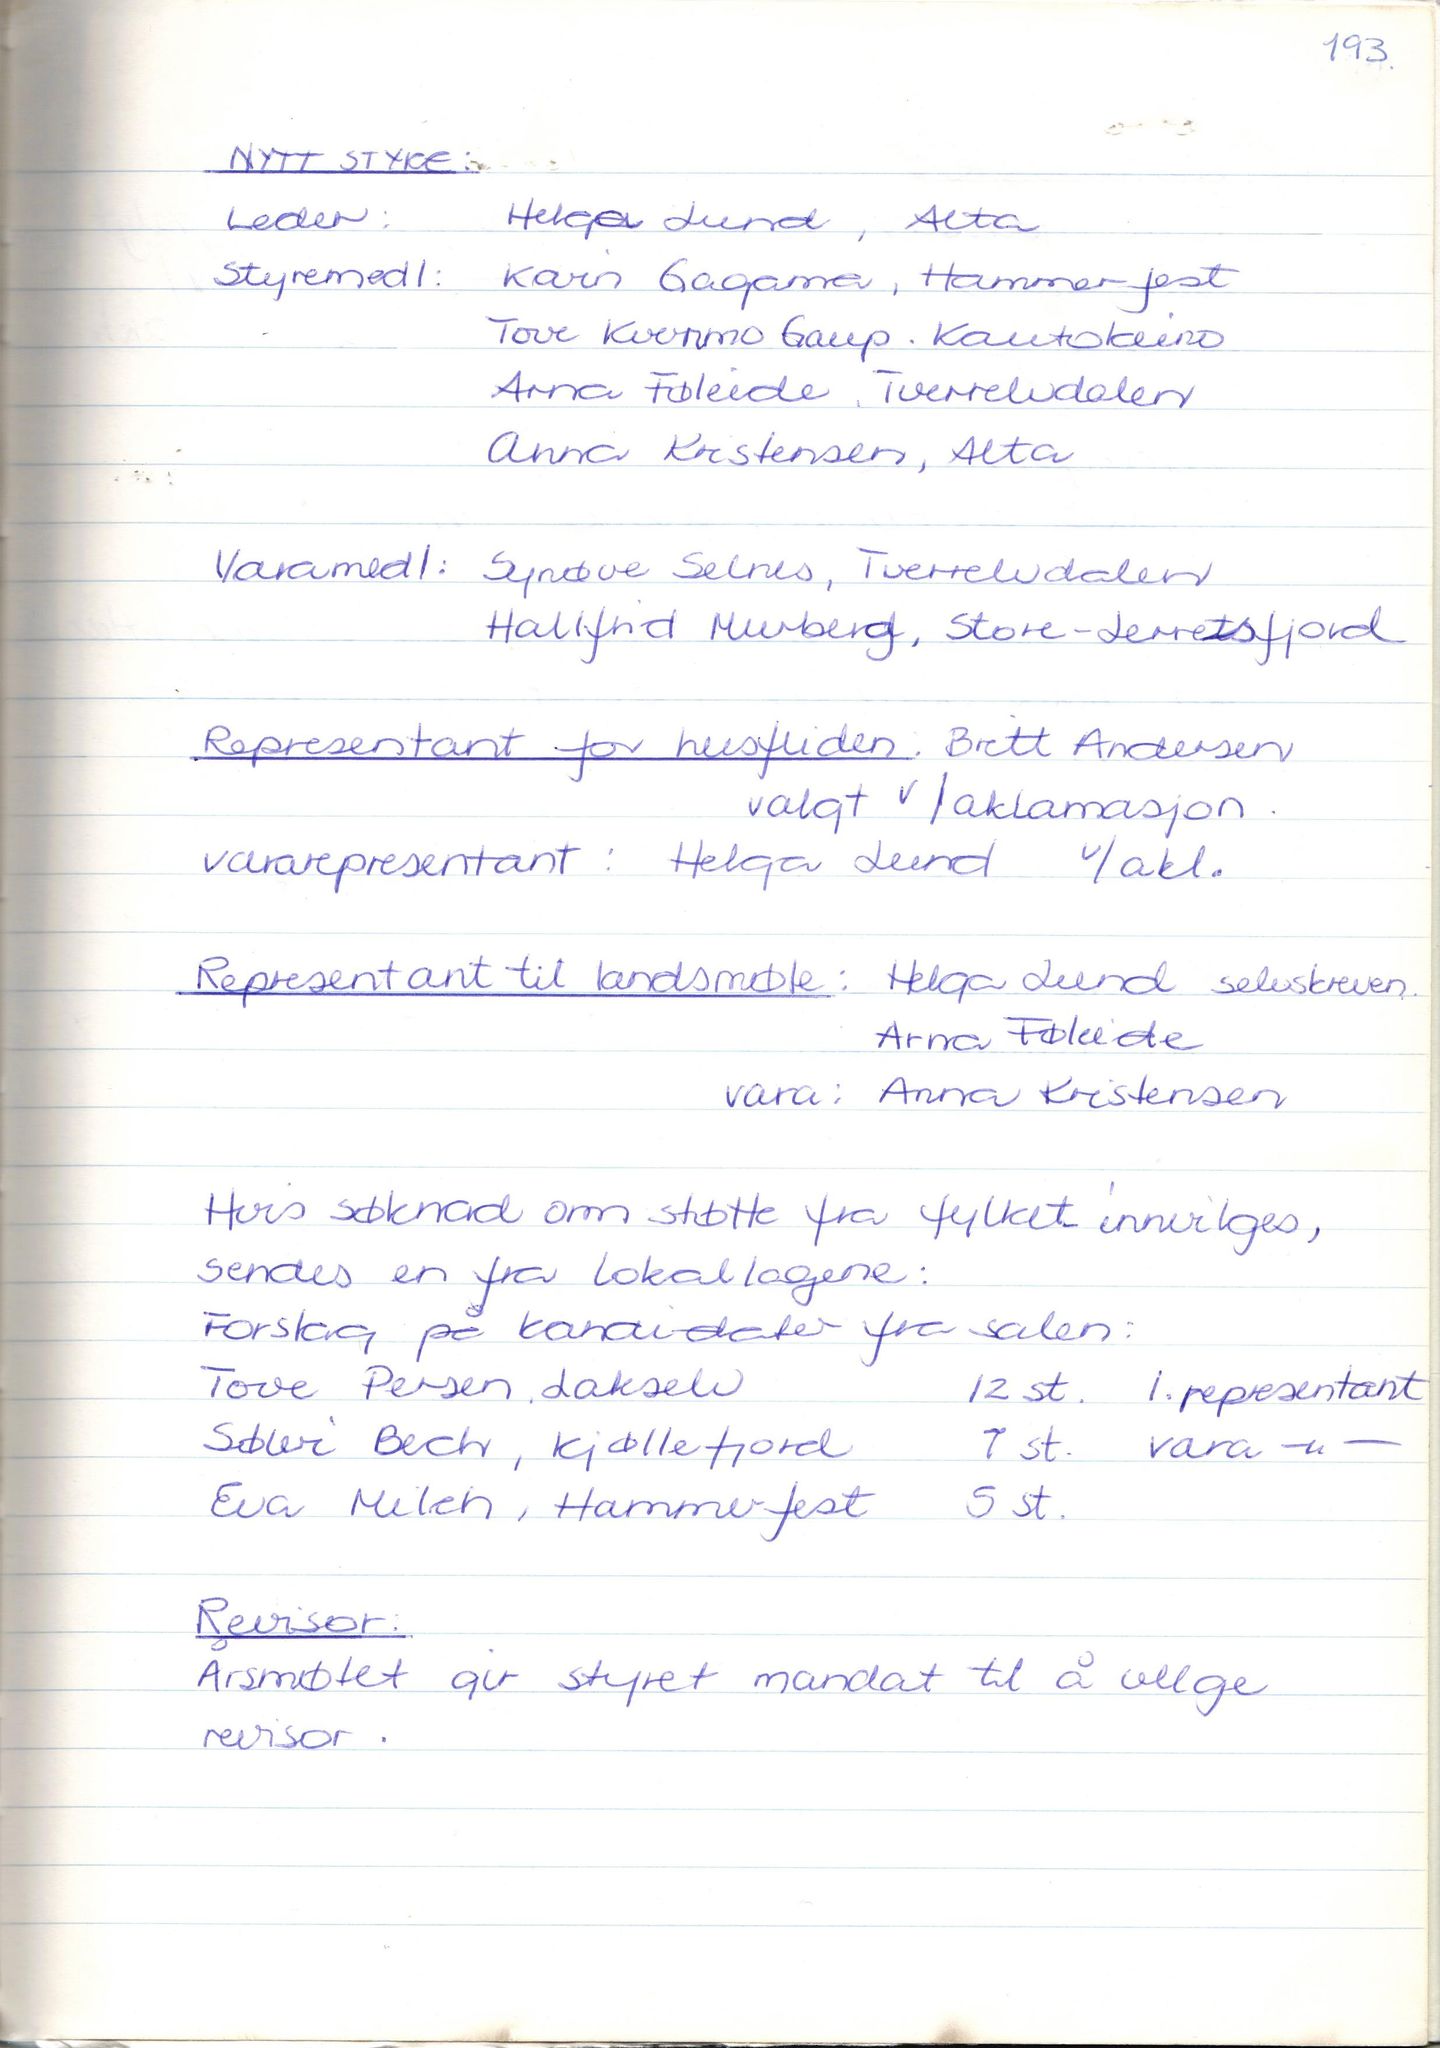 193.
NYTT STYRE:
Leder: Helga Lund, Alta
Styremedl: Karin Gagama, Hammerfest
Tove Kvernmo Gaup. Kautokeino
Arna Føleide. Tverrelvdalen
Anna Kristensen, Alta
Varamedl: Synøve Selnes, Tverrelvdalen
Hallfrid Murberg, Store-Lerretsfjord
Representant for husfliden. Britt Andersen
valgt v/aklamasjon.
vararepresentant: Helga Lund v/akl.
Representant til landsmøte: Helga Lund selvskreven.
Arna Føleide
vara: Anna Kristensen
Hvis søknad om støtte fra fylket innvilges,
sendes en fra lokallagene:
Forslag på kandidater fra salen:
Tove Persen, Lakselv 12 st. 1. representant
Sølvi Bech, Kjøllefjord 7 st. vara —"—
Eva Milch, Hammerfest 5 st.
Revisor:
Årsmøtet gir styret mandat til å velge
revisor.